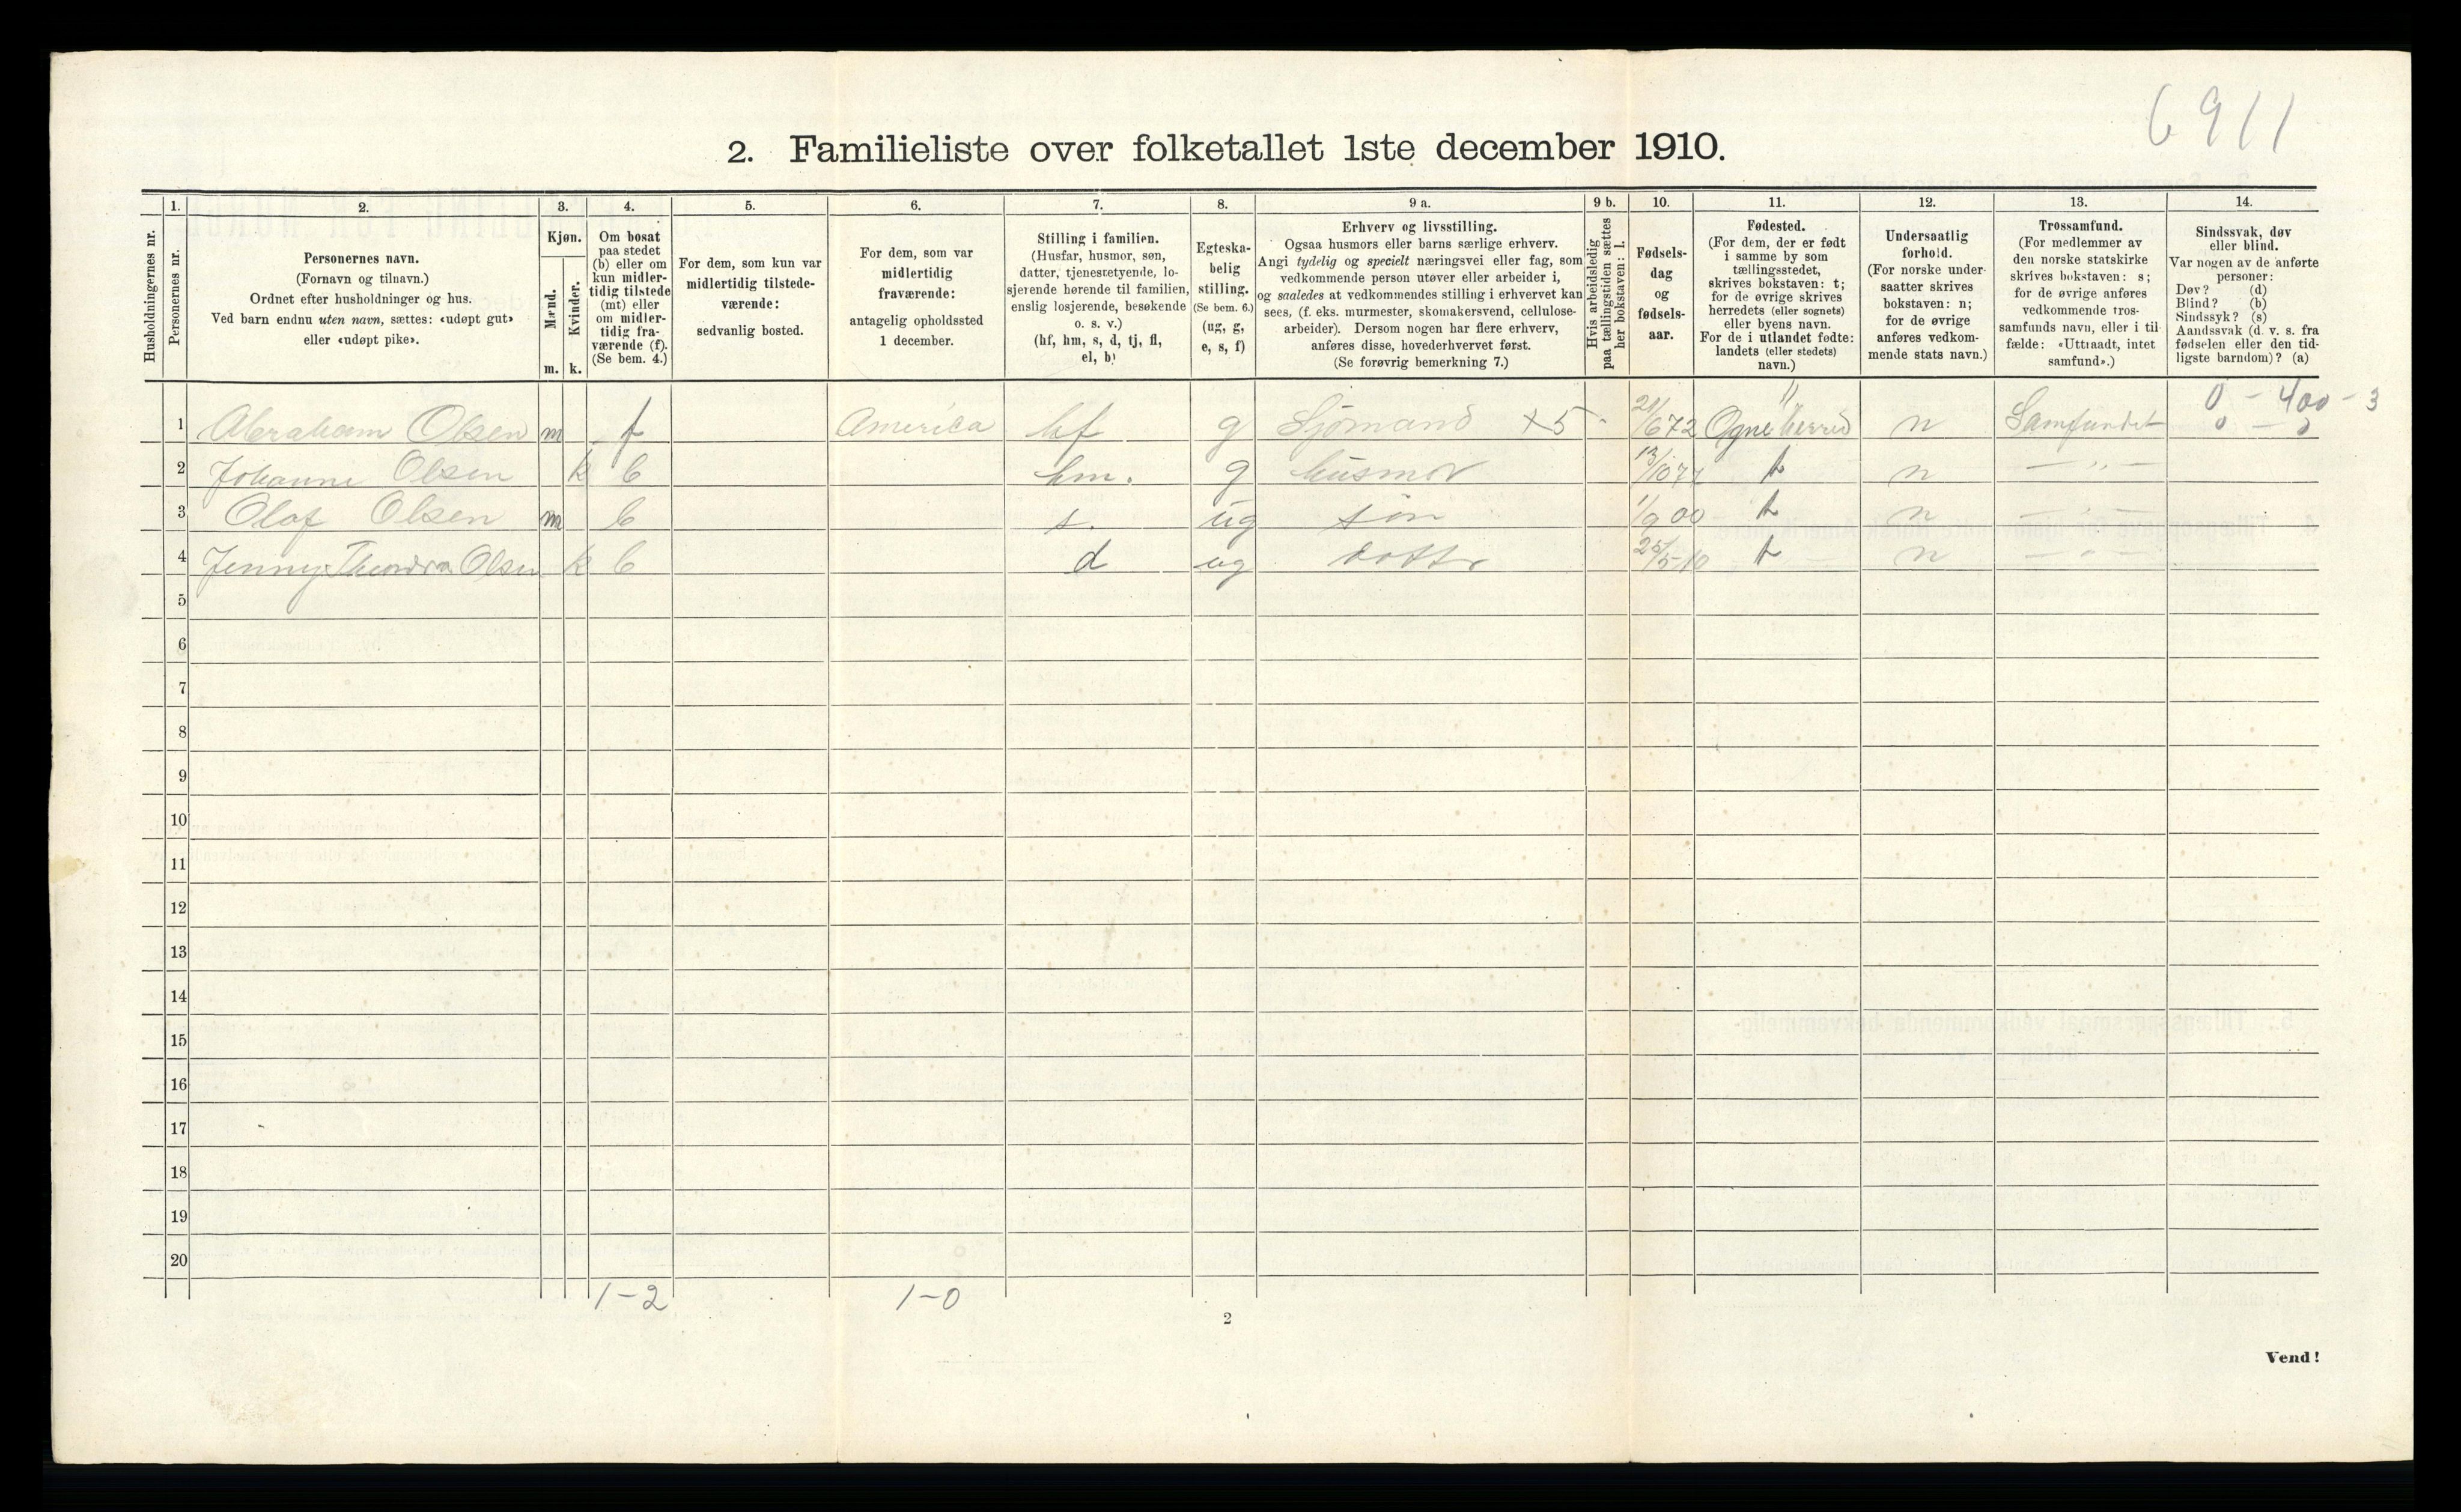 6911
2. Familieliste over folketallet 1ste december 1910.
Husholdningernes nr.
1.
Personernes nr.
2.
Personernes navn.
(Fornavn og tilnavn.)
Ordnet efter husholdninger og hus.
Ved barn endnu uten navn, sættes: «udøpt gut»
eller «udøpt pike».
3.
Kjøn.
Mænd.
Kvinder.
m. k.
4.
Om bosat
paa stedet
(b) eller om
kun midler-
tidig tilstede
(mt) eller
om midler-
tidig fra-
værende (f).
(Se bem. 4.)
5.
For dem, som kun var
midlertidig tilstede-
værende:
sedvanlig bosted.
6.
For dem, som var
midlertidig
fraværende:
antagelig opholdssted
1 december.
7.
Stilling i familien.
(Husfar, husmor, søn,
datter, tjenestetyende, lo-
sjerende hørende til familien,
enslig losjerende, besøkende
o. s. v.)
(hf, hm, s, d, tj, fl,
el, b)
8.
Egteska-
belig
stilling.
(Se bem. 6.)
(ug, g,
e, s, f)
9 a.
Erhverv og livsstilling.
Ogsaa husmors eller barns særlige erhverv.
Angi tydelig og specielt næringsvei eller fag, som
vedkommende person utøver eller arbeider i,
og saaledes at vedkommendes stilling i erhvervet kan
sees, (f. eks. murmester, skomakersvend, cellulose-
arbeider). Dersom nogen har flere erhverv,
anføres disse, hovederhvervet først.
(Se forøvrig bemerkning 7.)
9 b.
Hvis arbeidsledig
paa tællingstiden sættes
her bokstaven: l.
10.
Fødsels-
dag
og
fødsels-
aar.
11.
Fødested.
(For dem, der er født
i samme by som
tællingsstedet,
skrives bokstaven: t;
for de øvrige skrives
herredets (eller sognets)
eller byens navn.
For de i utlandet fødte:
landets (eller stedets)
navn.)
12.
Undersaatlig
forhold.
(For norske under-
saatter skrives
bokstaven: n;
for de øvrige
anføres vedkom-
mende stats navn.)
13.
Trossamfund.
(For medlemmer av
den norske statskirke
skrives bokstaven: s;
for de øvrige anføres
vedkommende tros-
samfunds navn, eller i til-
fælde: «Uttraadt, intet
samfund».)
14.
Sindssvak, døv
eller blind.
Var nogen av de anførte
personer:
Døv? (d)
Blind? (b)
Sindssyk? (s)
Aandssvak (d. v. s. fra
fødselen eller den tid-
ligste barndom)? (a)
0 - 400 - 3
1 Abraham Olsen m f America hf g Sjömand x5 - 21/6 72 Ogne herred n Samfundet 0 - 0
2 Johanne Olsen k b hm. g husmor 13/10 n — „ —
3 Olaf Olsen m b s. ug sön 1/9 00 t n — „ —
4 Jenny Theodora Olsen k b d ug datter 25/5 10 t n — „ —
5
6
7
8
9
10
11
12
13
14
15
16
17
18
19
20
1-2 1-0
2
Vend!